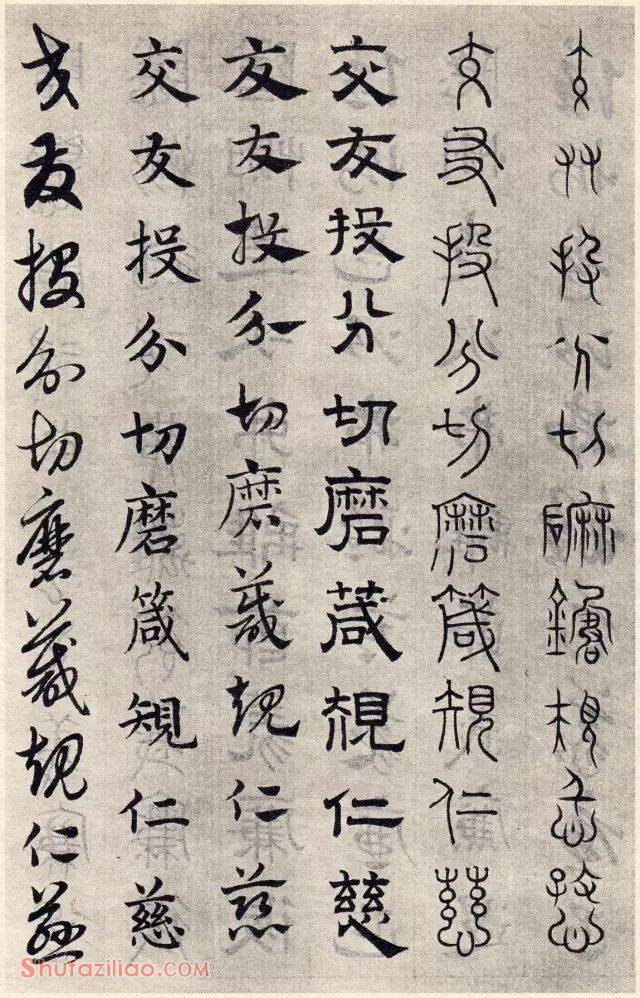 交友投分切磨箴規仁慈
交友投分切磨箴規仁慈
交友投分切磨箴規仁慈
交友投分切磨箴規仁慈
交友投分切磨箴規仁慈
交友投分切磨箴規仁慈
Shufaziliao.COM